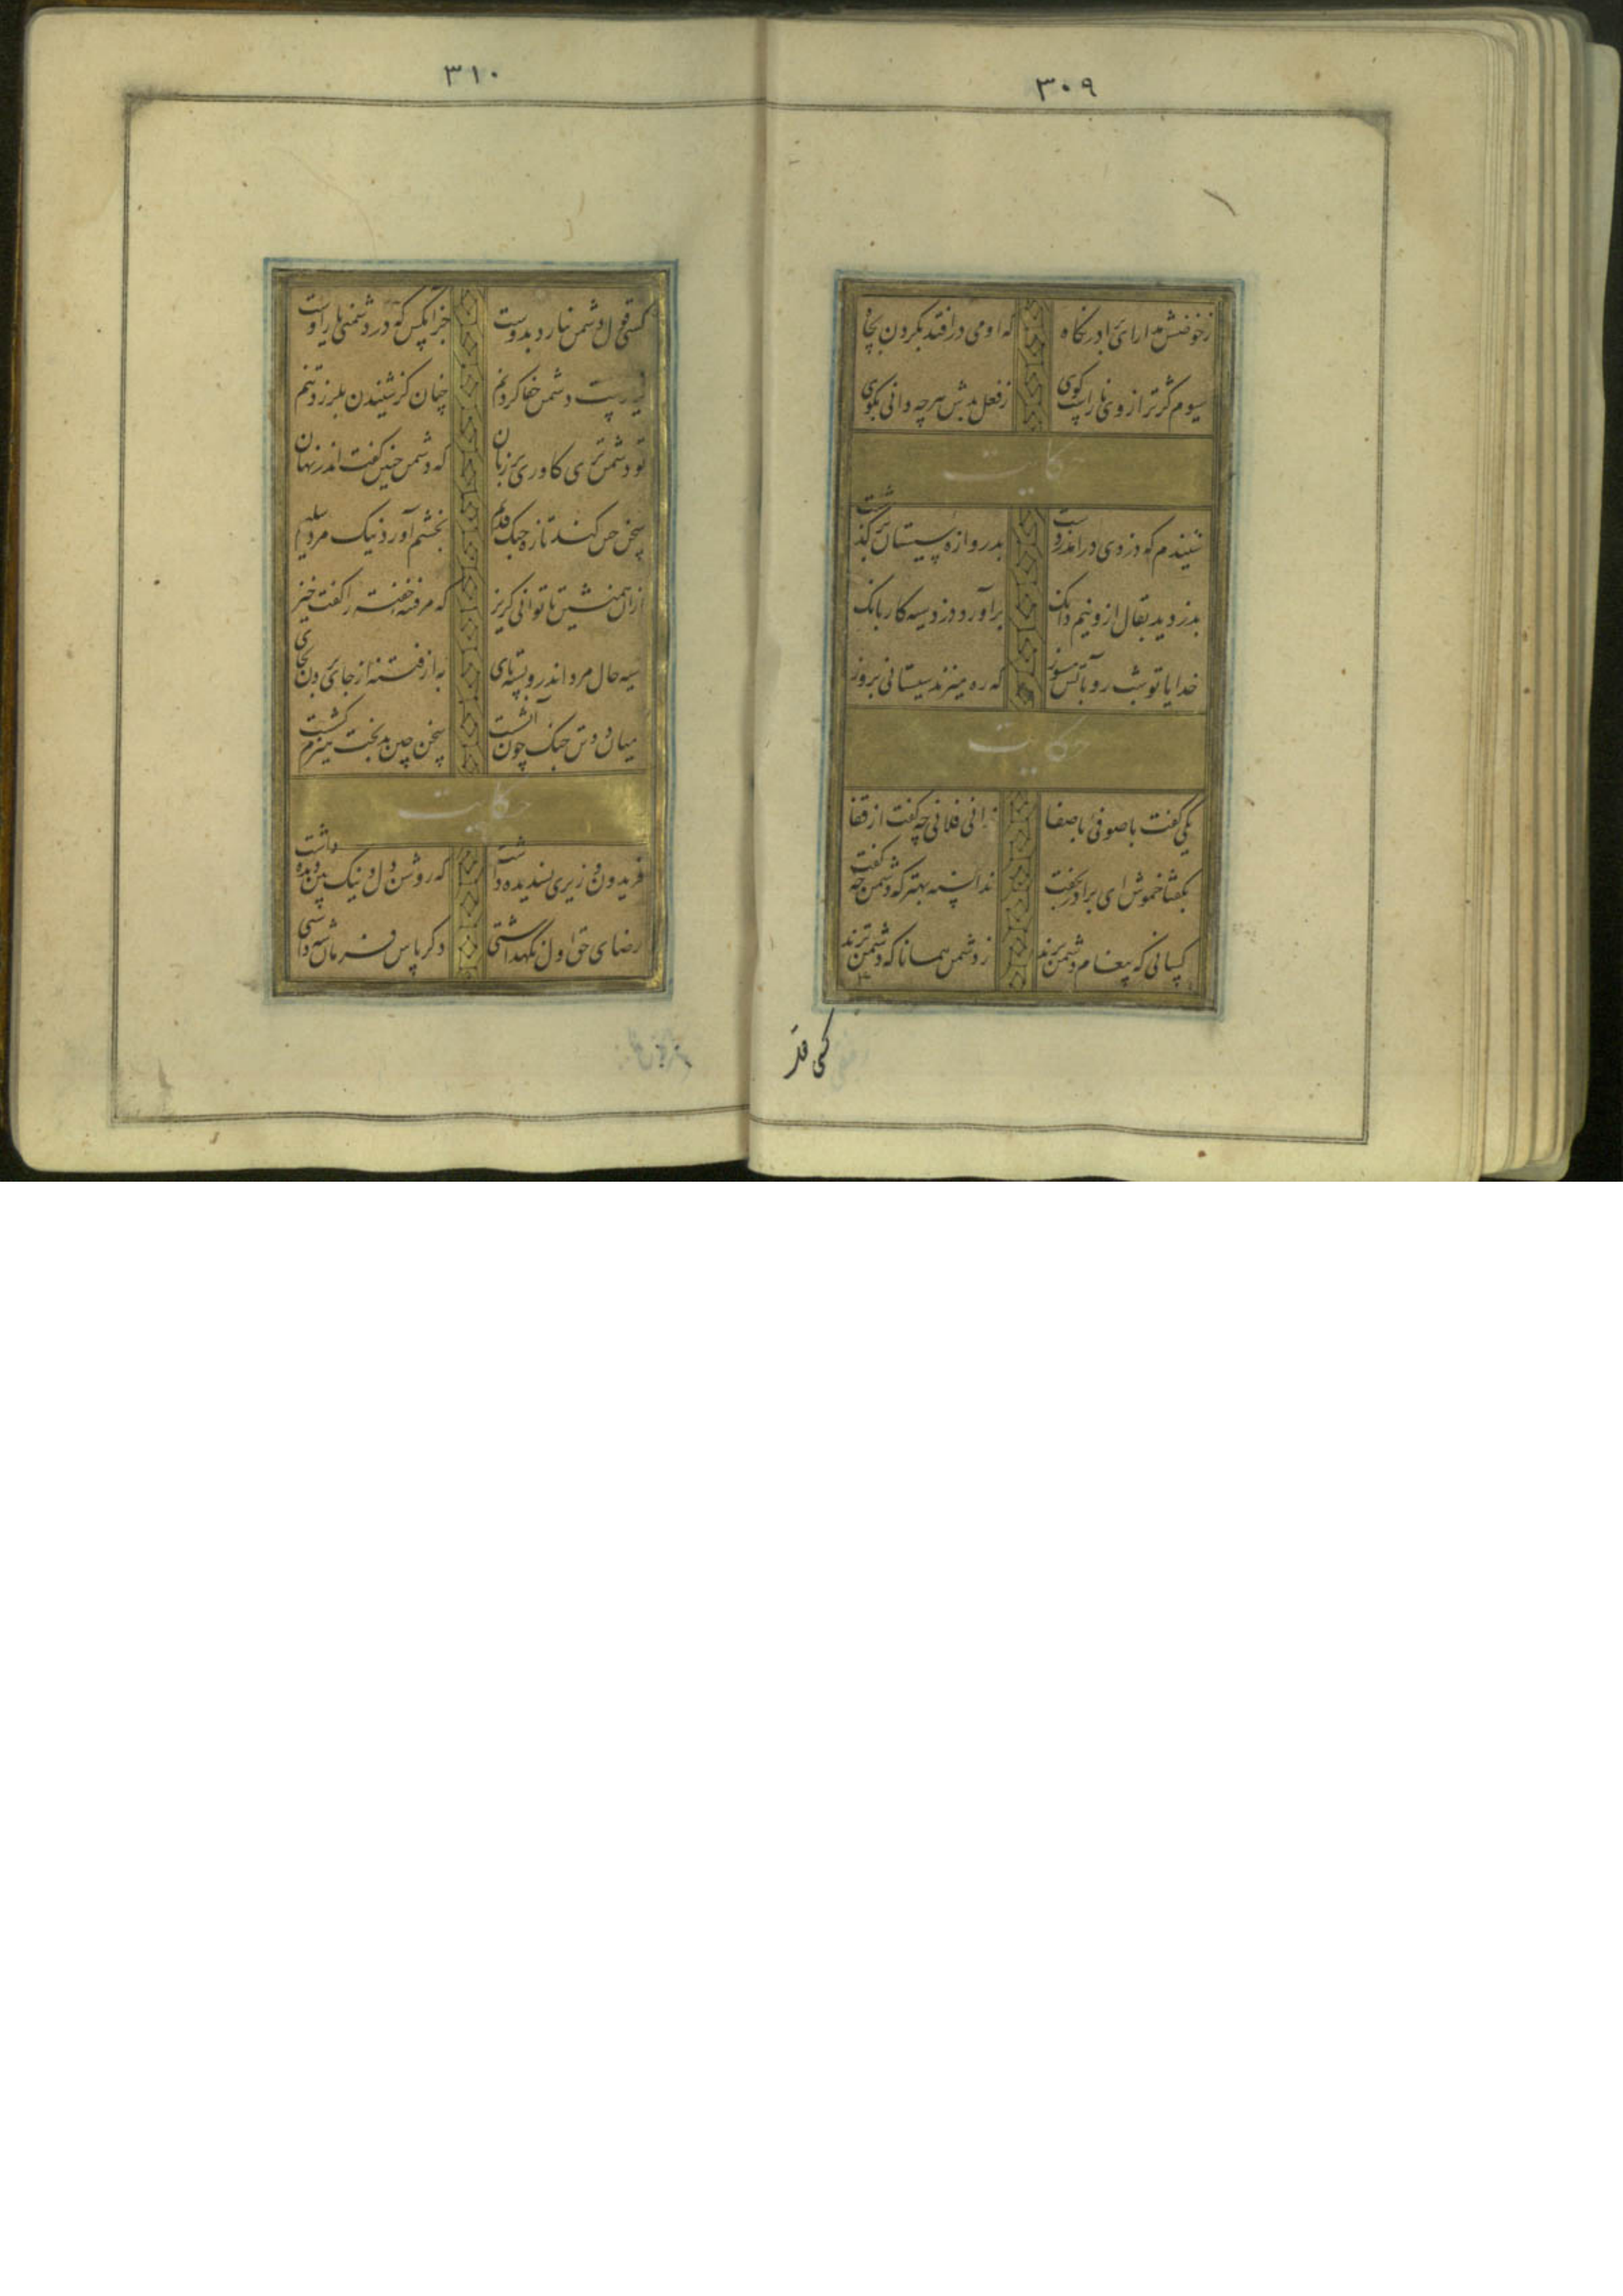 ۳۰۹
زخوضش مدارای ادر نکاه که او می درافتد بکردن بچاه
سیوم کژ ترازوی ناراست کوی زفعل بدش هرچه دانی بکوی
حکایت
شنیدم که دزدی درآمد ز دشت بدروازه سیستان بر کذشت
بدزدید بقال ازو نیم دانک برآورد دزد سیه کار بانک
خدایا تو شب رو بآتش مسوز که ره میزند سیستانی بروز
حکایت
یکی گفت با صوفئ با صفا ندانی فلانی چه گفت از قفا
بگفتا خموش ای برادر بخفت ندانسته بهتر که دشمن چه گفت
کسانی که پیغام دشمن برند ز دشمن همانا که دشمن ترند
کسی قو
۳۱۰
کسی قول دشمن نیارد بدوست جز آنکس که در دشمنی یار اوست
نیارست دشمن جفا کردنم چنان کز شنیدن بلرزد تنم
تو دشمن تری کاوری بر زبان که دشمن چنین گفت اندر نهان
سخن چین کند تازه جنک قدیم بخشم آورد نیک مرد سلیم
ازان همنشین تا توانی کریز که مر فتنه خفته را گفت خیز
سیه چال مرد اندرو بسته پای به از فتنه از جای بردن بجای
میان دو تن جنک چون آتشست سخن چین بدبخت هیزم کشست
حکایت
فریدون وزیری پسندیده داشت که روشن دل و نیک بین دیده داشت
رضای حق اول نکهداشتی دکر پاس فرمان شه داشتی